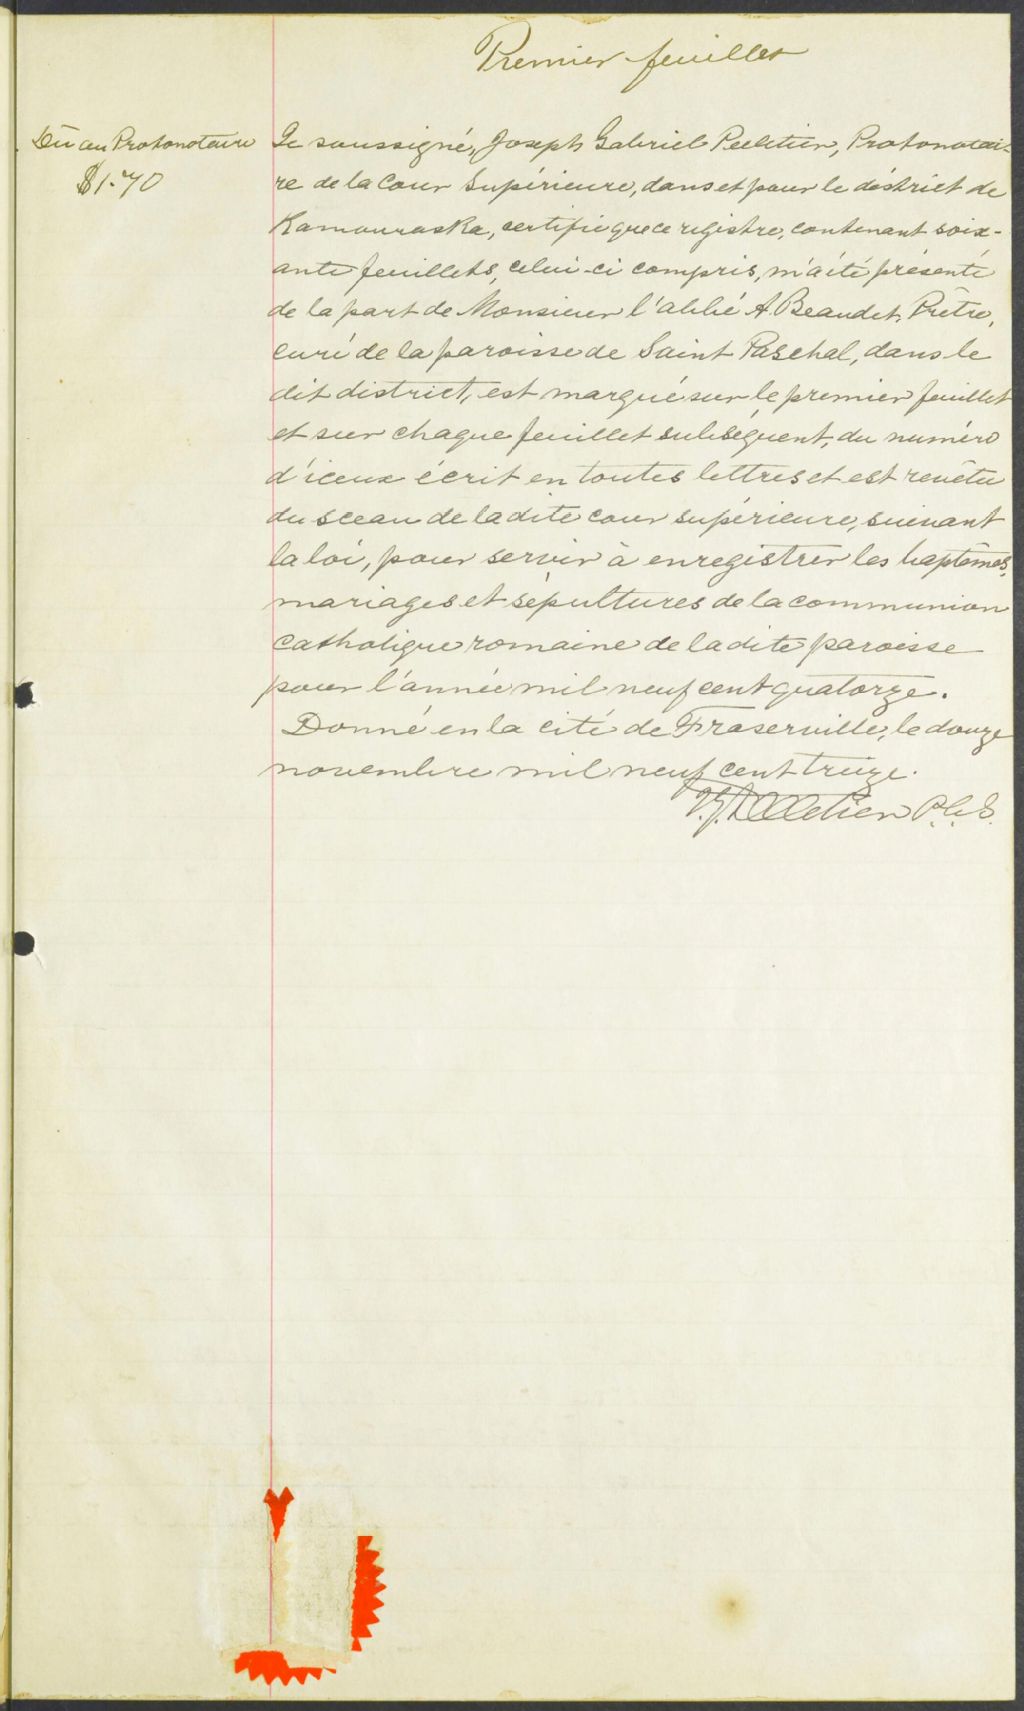 Premier feuillet
Dû au Protonotaire
$1.70
Je soussigné, Joseph Gabriel Pelletier, Protonotai-
re de la Cour Supérieure, dans et pour le district de
Kamouraska, certifie que ce registre, contenant soix-
ante feuillets, celui-ci compris, m'a été présenté
de la part de Monsieur l'abbé A. Beaudet, Prêtre,
curé de la paroisse de Saint Paschal, dans le
dit district, est marqué sur le premier feuillet
et sur chaque feuillet subséquent, du numéro
d'iceux écrit en toutes lettres et est revêtu
du sceau de la dite cour supérieure, suivant
la loi, pour servir à enregistrer les baptêmes,
mariages et sépultures de la communion
catholique romaine de la dite paroisse
pour l'année mil neuf cent quatorze.
Donné en la cité de Fraserville, le douze
novembre mil neuf cent treize.
J.G. Pelletier P.C.S.